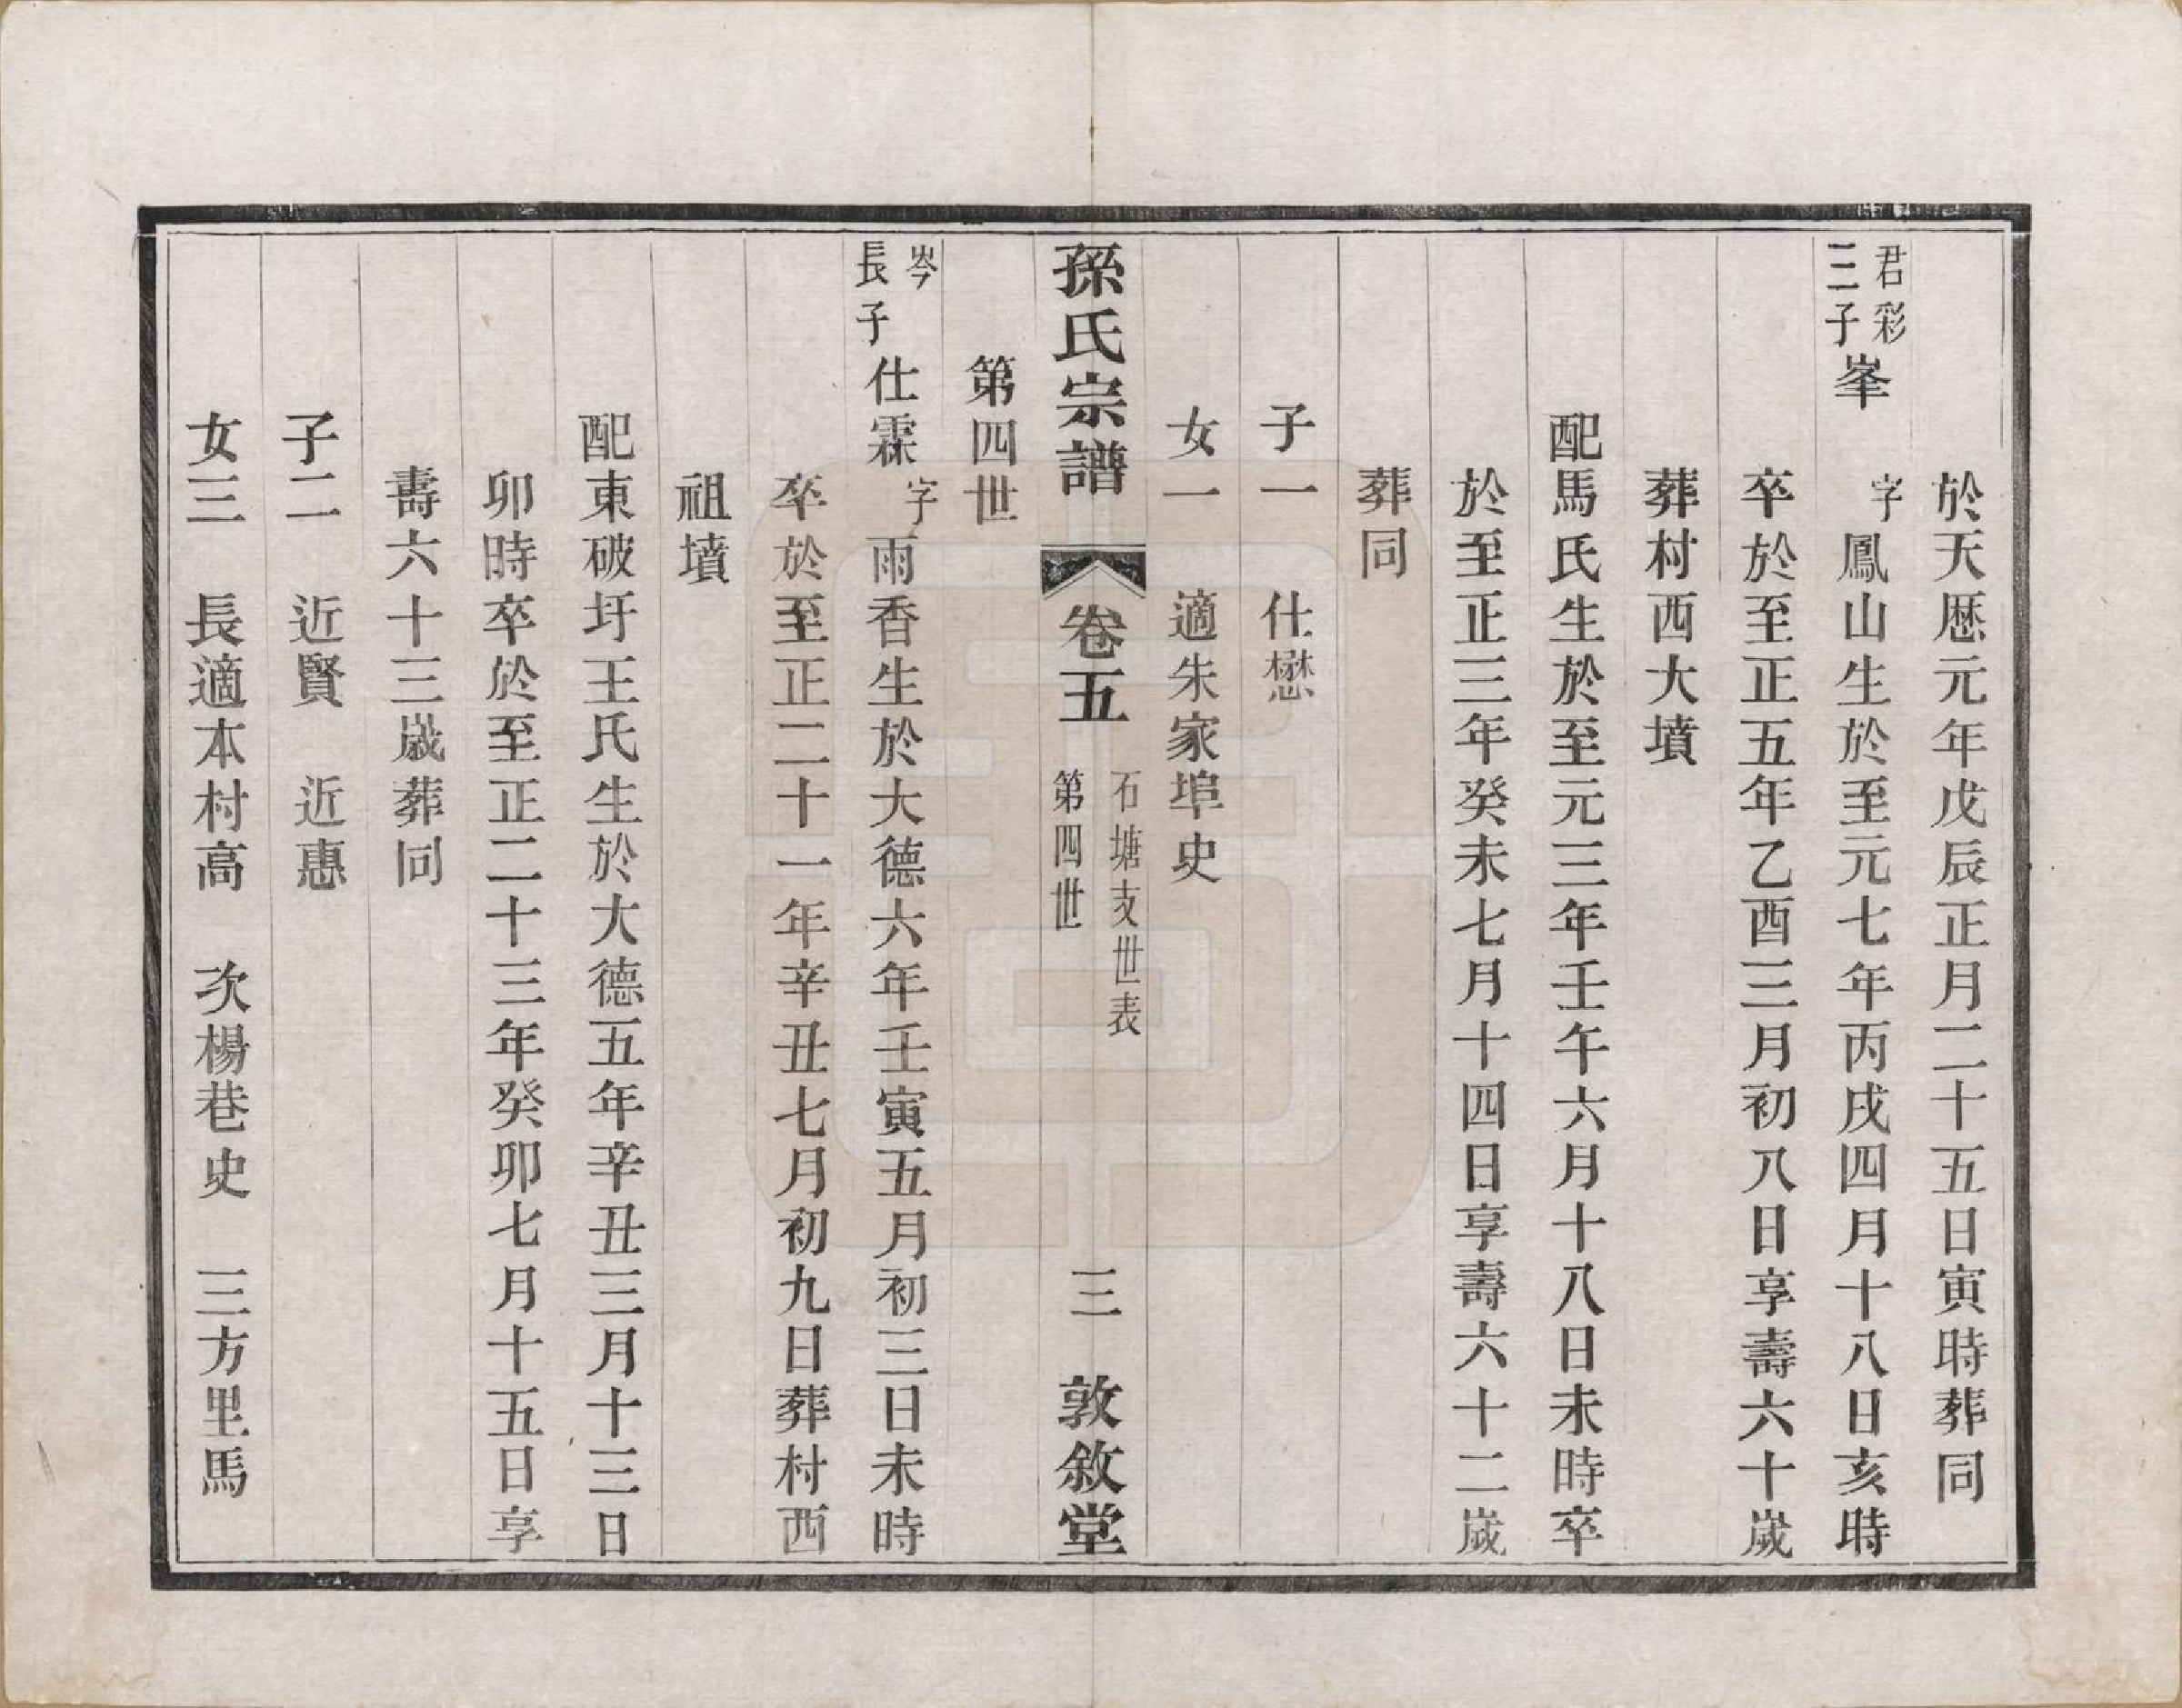 於天歷元年戊辰正月二十五日寅時葬同
君彩三子峯字鳳山生於至元七年丙戌四月十八日亥時
卒於至正五年乙酉三月初八日享壽六十歲
葬村西大墳
配馬氏生於至元三年壬午六月十八日未時卒
於至正三年癸未七月十四日享壽六十二歲
葬同
子一 仕懋
女一 適朱家埠史
孫氏宗譜 卷五 石塘支世表 第四世 三 敦敘堂
第四世
岑長子仕霖字雨香生於大德六年壬寅五月初三日未時
卒於至正二十一年辛丑七月初九日葬村西
祖墳
配東破圩王氏生於大德五年辛丑三月十三日
卯時卒於至正二十三年癸卯七月十五日享
壽六十三歲葬同
子二 近賢 近惠
女三 長適本村高 次楊巷史 三方里馬